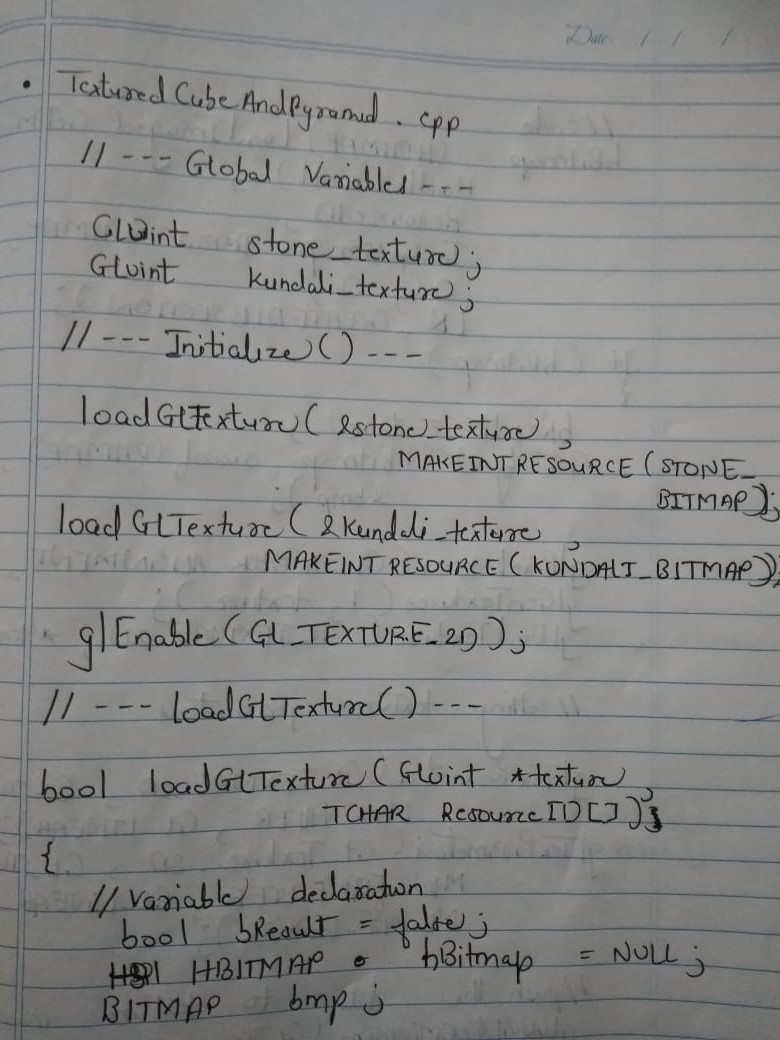 Date / / /
• TexturedCubeAndPyramid.cpp
// --- Global Variables ---
GLUint stone_texture;
GLuint kundali_texture;
// --- Initialize() ---
loadGLTexture(&stone_texture,
MAKEINTRESOURCE(STONE_
BITMAP));
loadGLTexture(&kundali_texture,
MAKEINTRESOURCE(KUNDALI_BITMAP));
glEnable(GL_TEXTURE_2D);
// --- loadGLTexture() ---
bool loadGLTexture(GLuint *texture,
TCHAR ResourceID[])
{
// Variable declaration
bool bResult = false;
HBITMAP hBitmap = NULL;
BITMAP bmp;